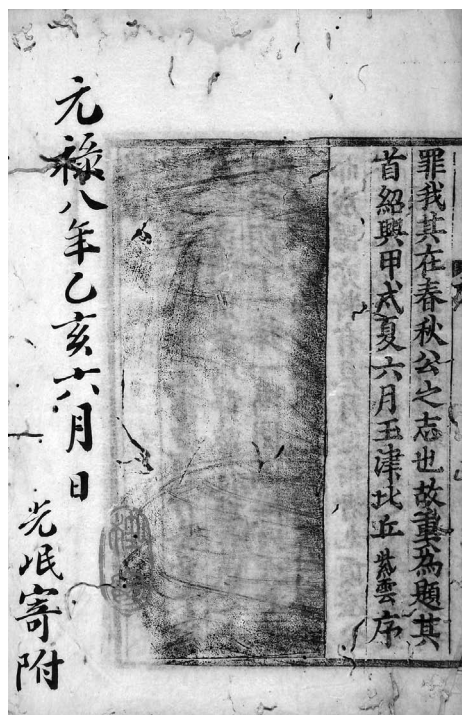 罪我其在春秋公之志也故裏為題其
首紹興甲戌夏六月玉津比丘紫雲序
元祿八年乙亥六月日
光岷寄附